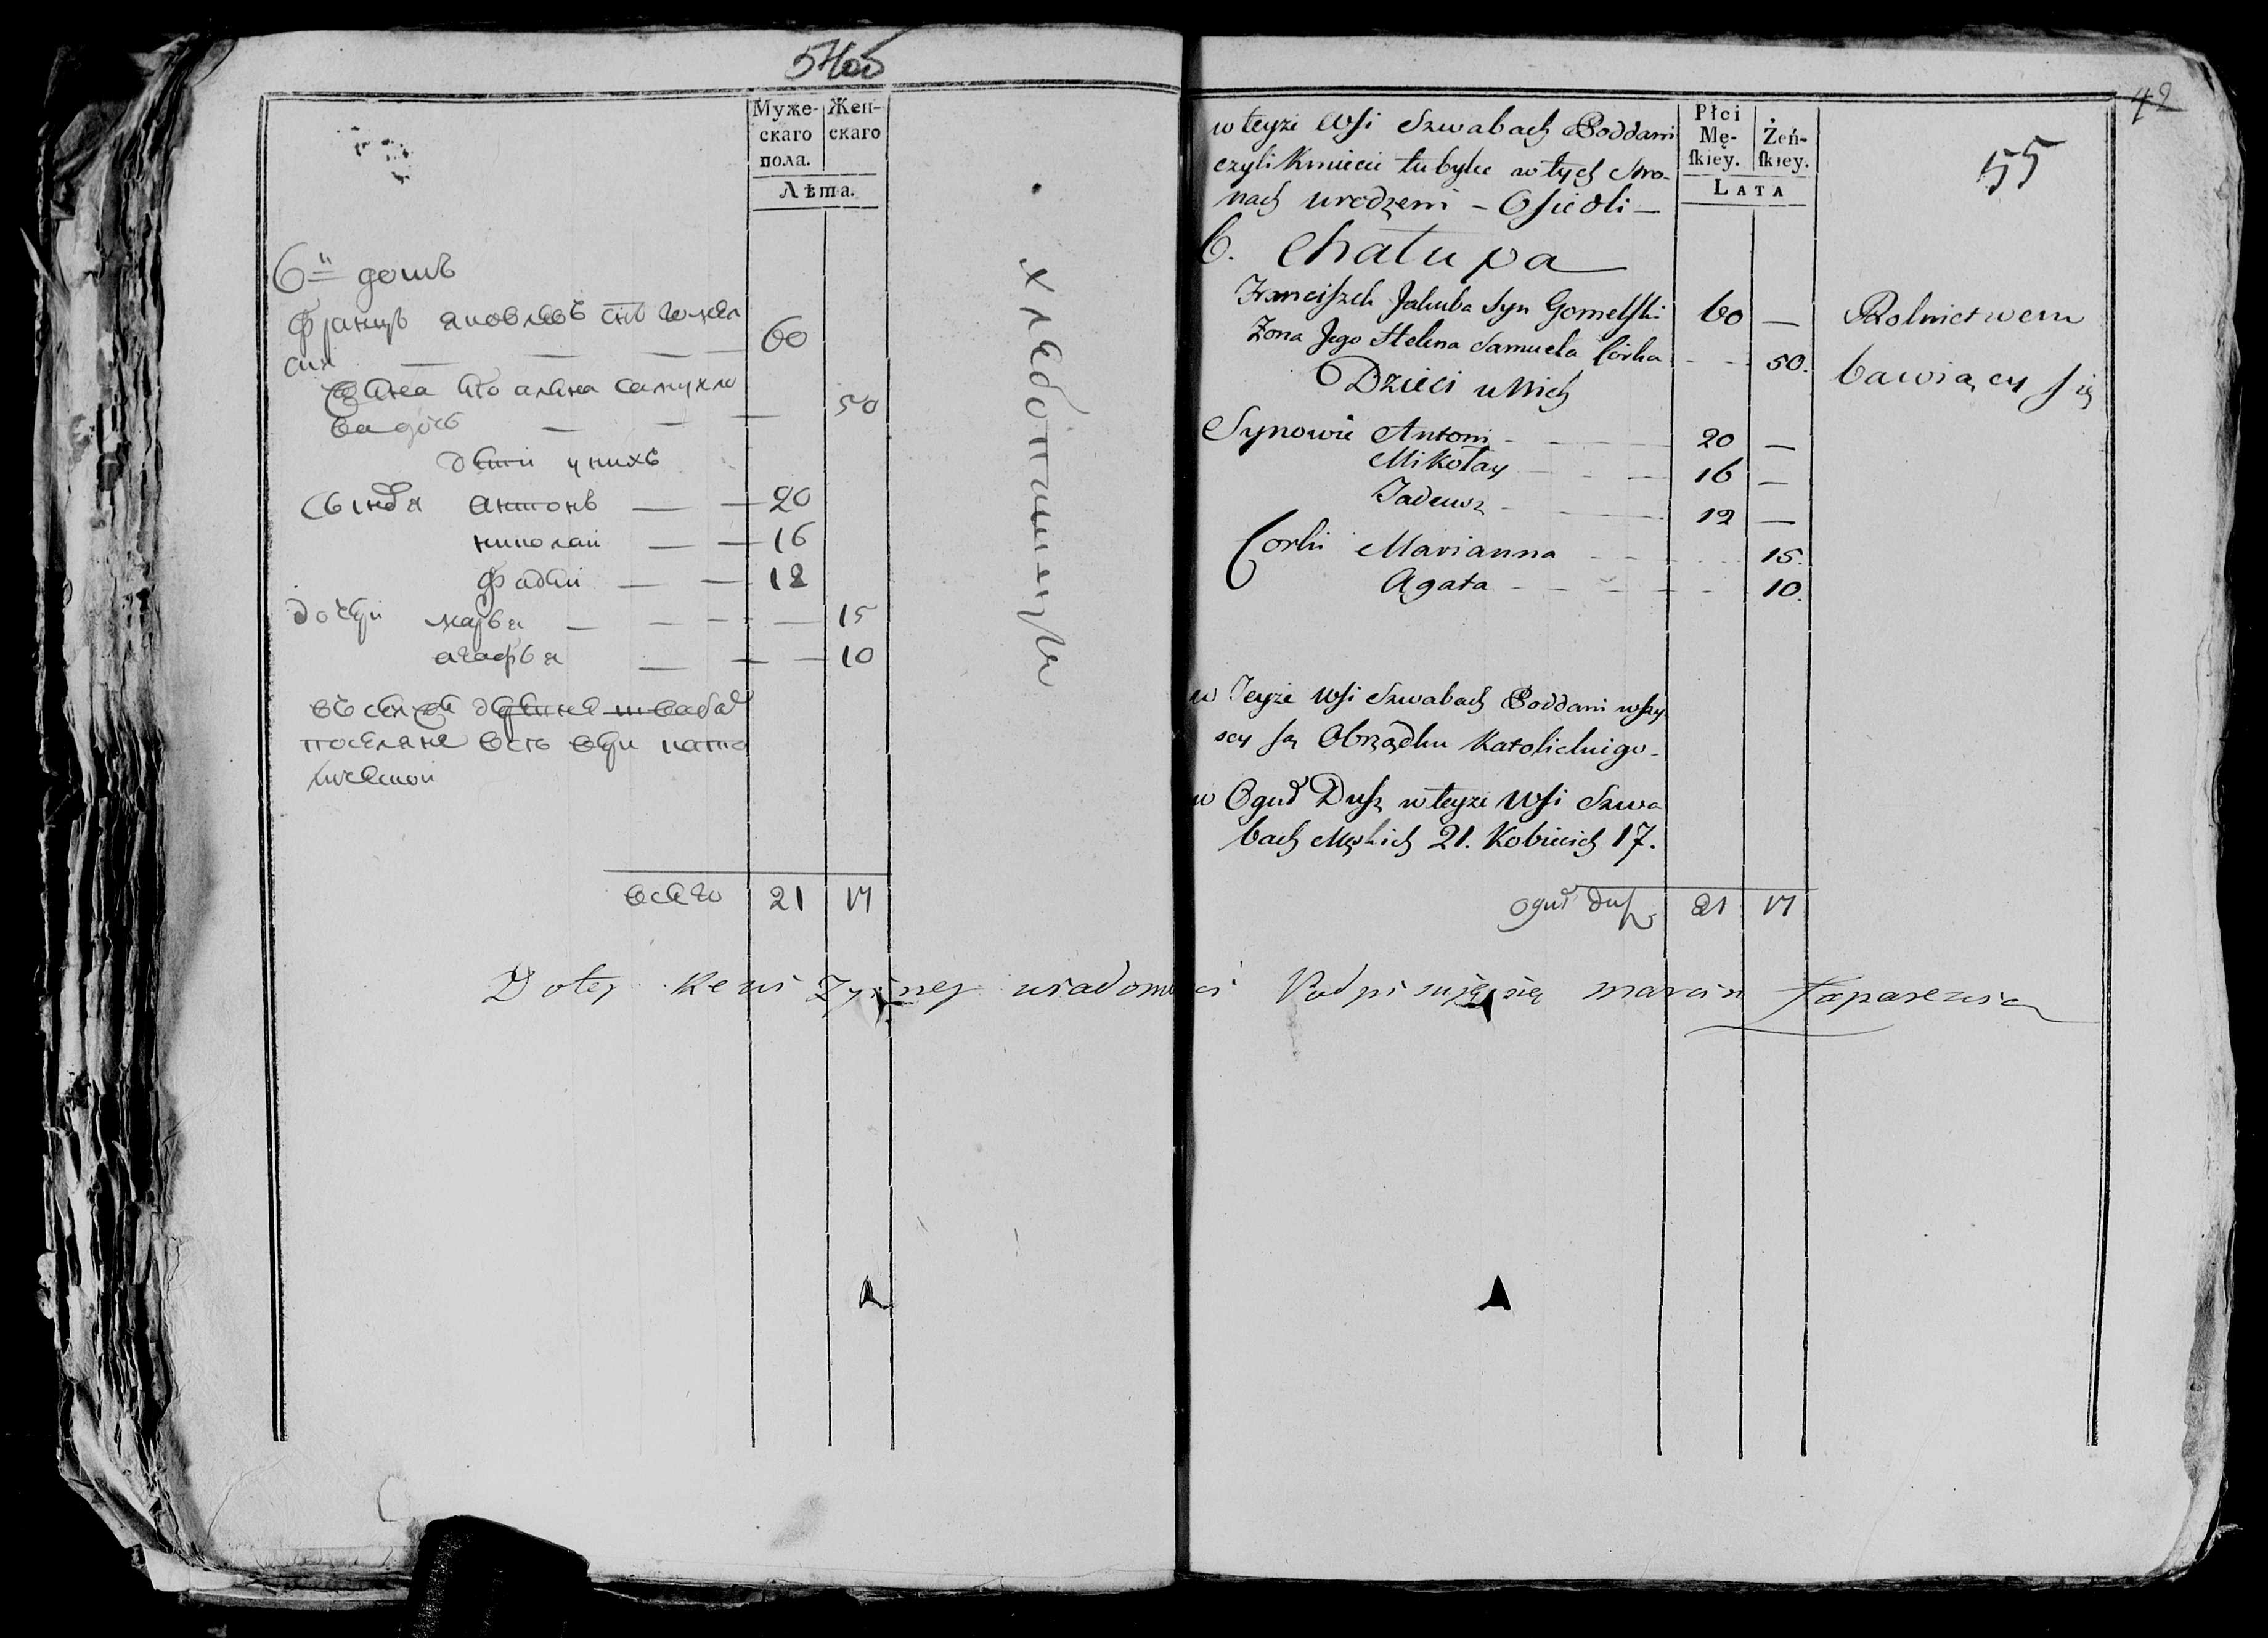 54об
Муже-
скаго
пола.
Жен-
скаго
Лѣта.
6й домъ
Францъ яковлевъ снъ гомел
ски
60
Жена его алена самуйло
ва дочь
50
дети у нихъ
Сыновья антонъ 20
николай 16
фадей 12
дочери марья 15
агафья 10
въ сей же деревне швабах
поселяне есть веры като
лической
всего 21 17
хлебопашцы
42
55
w teyże Wsi Szwabach Poddani
czyli Kmiecie tubylce w tych stro-
nach urodzeni – Osiedli –
Płci
Mę-
ſkiey.
Żeń-
ſkiey.
LATA
6. Chałupa
Franciszek Jakuba Syn Gomelski 60 —
Żona Jego Helena Samuela Córka 50.
Dzieci u Nich
Synowie Antoni 20 —
Mikołay 16 —
Tadeusz 12 —
Corki Marianna 15.
Agata 10.
Rolnictwem
bawiący się
w Teyże Wsi Szwabach Poddani wszy-
scy są Obrządku Katolickiego
w Oguł Dusz w teyże Wsi Szwa
bach Męskich 21. Kobiecich 17.
oguł dusz 21 17
Do tey Rewizyiney wiadomości Podpisuję się marcin